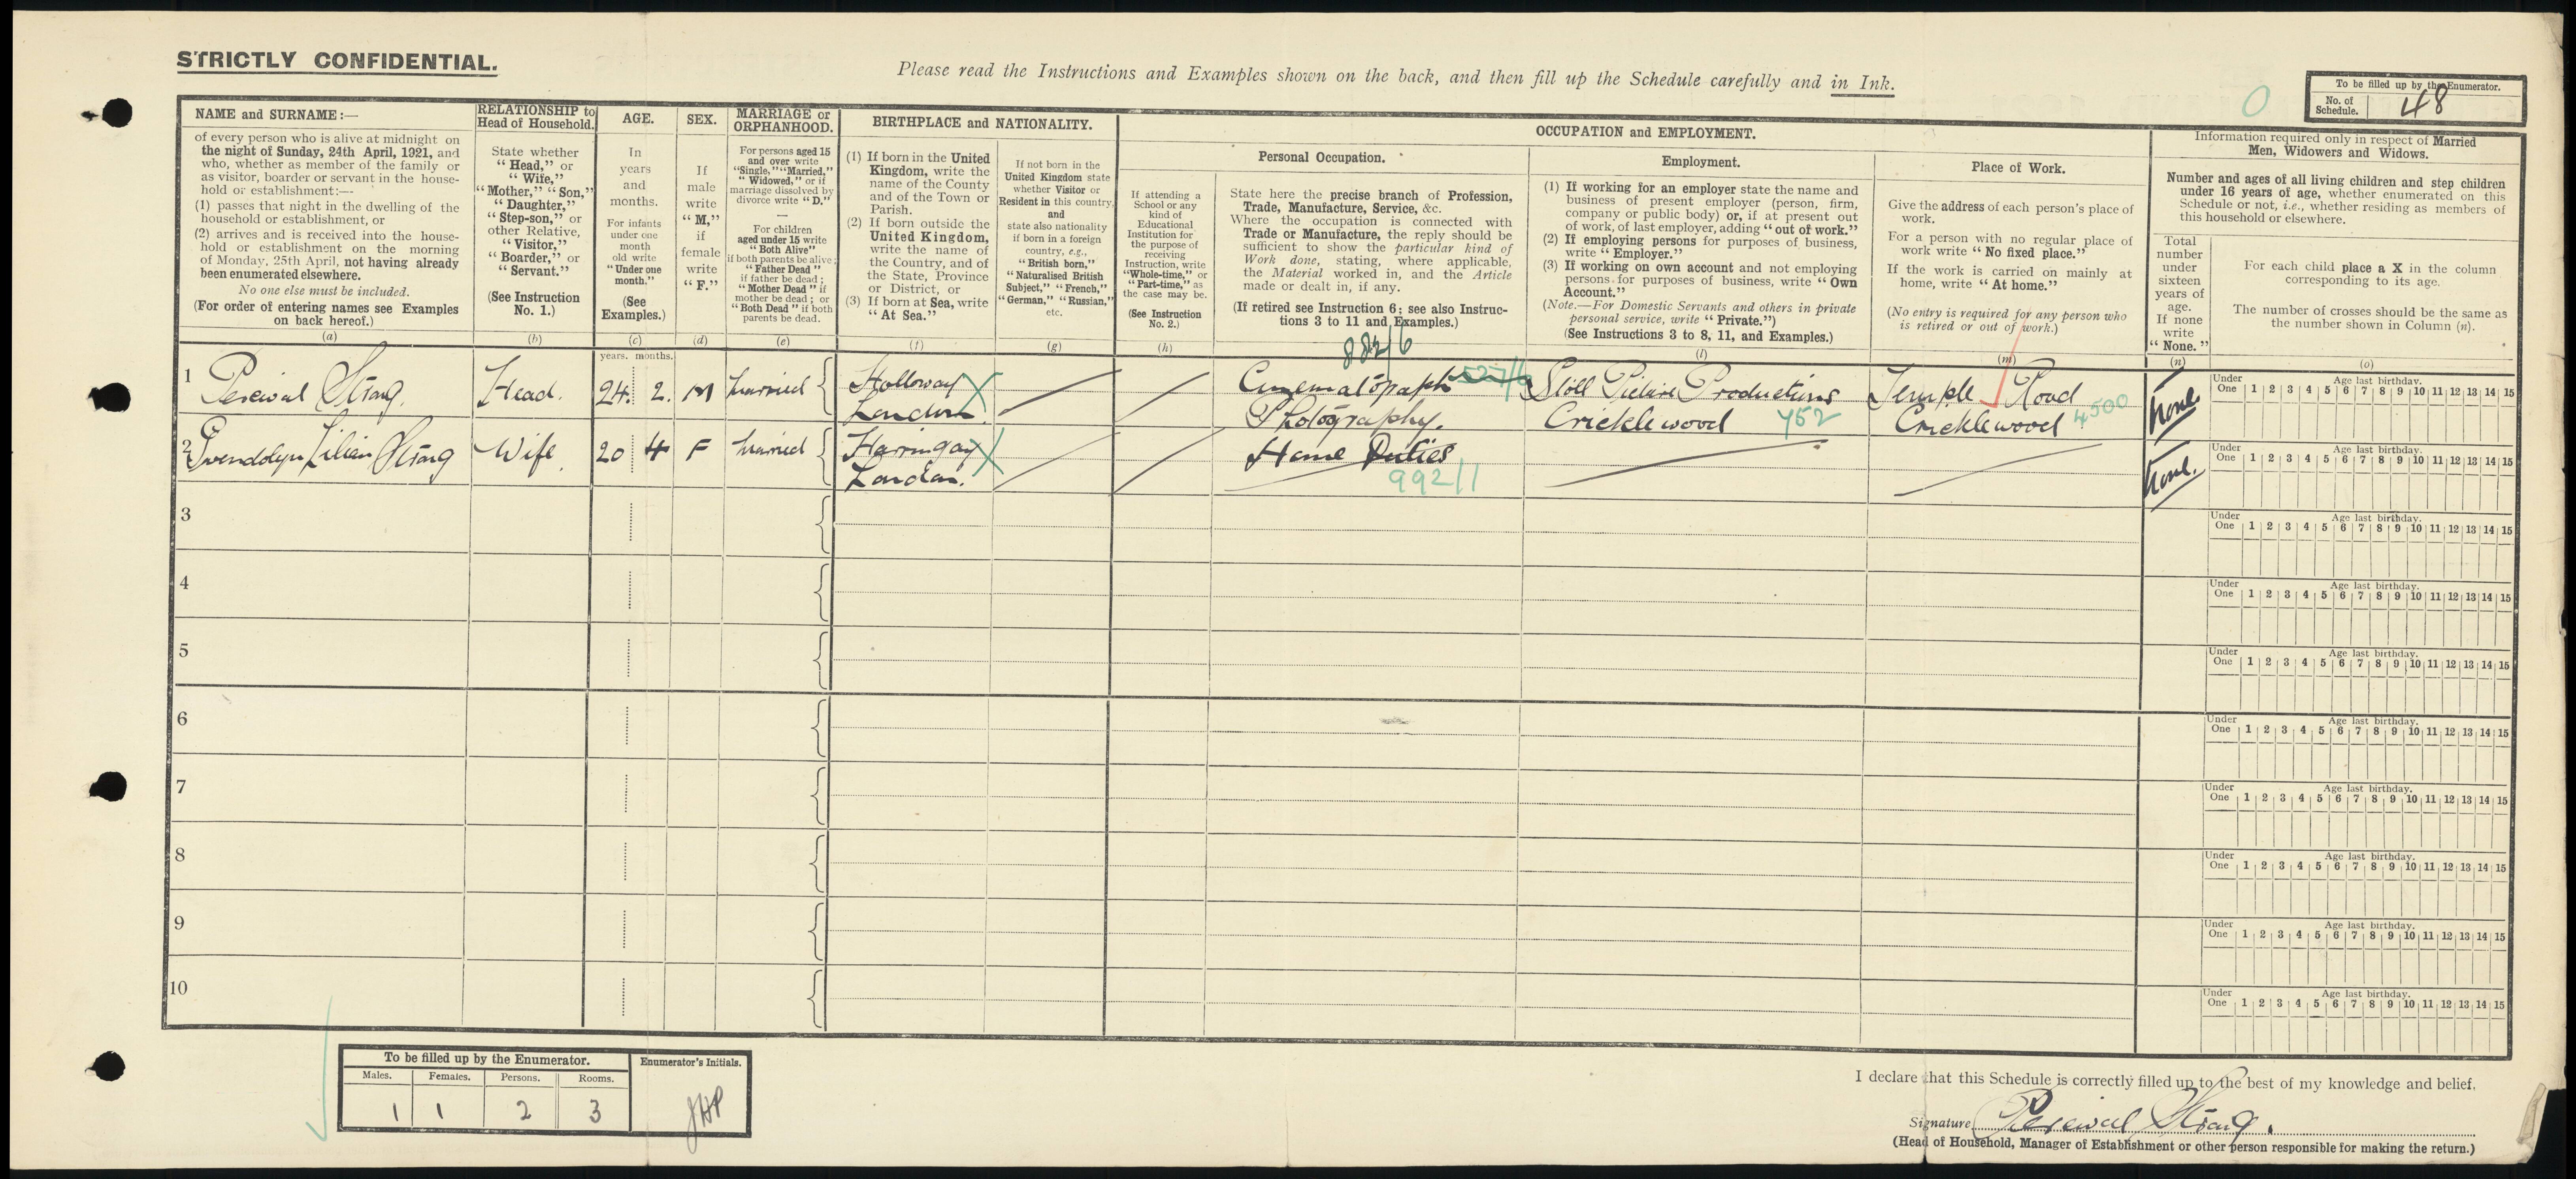 STRICTLY CONFIDENTIAL.
Please read the Instructions and Examples shown on the back, and then fill up the Schedule carefully and in Ink.
To be filled up by the Enumerator.
No. of Schedule. 48
0
NAME and SURNAME:—
of every person who is alive at midnight on
the night of Sunday, 24th April, 1921, and
who, whether as member of the family or
as visitor, boarder or servant in the house-
hold or establishment:—
(1) passes that night in the dwelling of the
household or establishment, or
(2) arrives and is received into the house-
hold or establishment on the morning
of Monday, 25th April, not having already
been enumerated elsewhere.
No one else must be included.
(For order of entering names see Examples
on back hereof.)
(a)
RELATIONSHIP to
Head of Household.
State whether
"Head," or
"Wife,"
"Mother," "Son,"
"Daughter,"
"Step-son," or
other Relative,
"Visitor,"
"Boarder," or
"Servant."
(See Instruction
No. 1.)
(b)
AGE.
In
years
and
months.
For infants
under one
month
old write
"Under one
month."
(See
Examples.)
(c)
years. months.
SEX.
If
male
write
"M,"
if
female
write
"F."
(d)
MARRIAGE or
ORPHANHOOD.
For persons aged 15
and over write
"Single," "Married,"
"Widowed," or if
marriage dissolved by
divorce write "D."
—
For children
aged under 15 write
"Both Alive"
if both parents be alive;
"Father Dead"
if father be dead;
"Mother Dead" if
mother be dead; or
"Both Dead" if both
parents be dead.
(e)
BIRTHPLACE and NATIONALITY.
(1) If born in the United
Kingdom, write the
name of the County
and of the Town or
Parish.
(2) If born outside the
United Kingdom,
write the name of
the Country, and of
the State, Province
or District, or
(3) If born at Sea, write
"At Sea."
(f)
If not born in the
United Kingdom state
whether Visitor or
Resident in this country,
and
state also nationality
if born in a foreign
country, e.g.,
"British born,"
"Naturalised British
Subject," "French,"
"German," "Russian,"
etc.
(g)
OCCUPATION and EMPLOYMENT.
If attending a
School or any
kind of
Educational
Institution for
the purpose of
receiving
Instruction, write
"Whole-time," or
"Part-time," as
the case may be.
(See Instruction
No. 2.)
(h)
Personal Occupation.
State here the precise branch of Profession,
Trade, Manufacture, Service, &c.
Where the occupation is connected with
Trade or Manufacture, the reply should be
sufficient to show the particular kind of
Work done, stating, where applicable,
the Material worked in, and the Article
made or dealt in, if any.
(If retired see Instruction 6; see also Instruc-
tions 3 to 11 and Examples.)
Employment.
(1) If working for an employer state the name and
business of present employer (person, firm,
company or public body) or, if at present out
of work, of last employer, adding "out of work."
(2) If employing persons for purposes of business,
write "Employer."
(3) If working on own account and not employing
persons for purposes of business, write "Own
Account."
(Note.—For Domestic Servants and others in private
personal service, write "Private.")
(See Instructions 3 to 8, 11, and Examples.)
(l)
Place of Work.
Give the address of each person's place of
work.
For a person with no regular place of
work write "No fixed place."
If the work is carried on mainly at
home, write "At home."
(No entry is required for any person who
is retired or out of work.)
(m)
Information required only in respect of Married
Men, Widowers and Widows.
Number and ages of all living children and step children
under 16 years of age, whether enumerated on this
Schedule or not, i.e., whether residing as members of
this household or elsewhere.
Total
number
under
sixteen
years of
age.
If none
write
"None."
(n)
For each child place a X in the column
corresponding to its age.
The number of crosses should be the same as
the number shown in Column (n).
(o)
1 Percival Strong. Head. 24 2. M Married Holloway London. Cinematograph Photography. Stoll Picture Productions Cricklewood 752 Temple Road Cricklewood 4500 None
Under One 1 2 3 4 5 6 7 8 9 10 11 12 13 14 15
Age last birthday.
2 Gwendolyn Lilian Strong Wife 20 4 F Married Harringay London. Home Duties 992/1 None.
Under One 1 2 3 4 5 6 7 8 9 10 11 12 13 14 15
Age last birthday.
3
Under One 1 2 3 4 5 6 7 8 9 10 11 12 13 14 15
Age last birthday.
4
Under One 1 2 3 4 5 6 7 8 9 10 11 12 13 14 15
Age last birthday.
5
Under One 1 2 3 4 5 6 7 8 9 10 11 12 13 14 15
Age last birthday.
6
Under One 1 2 3 4 5 6 7 8 9 10 11 12 13 14 15
Age last birthday.
7
Under One 1 2 3 4 5 6 7 8 9 10 11 12 13 14 15
Age last birthday.
8
Under One 1 2 3 4 5 6 7 8 9 10 11 12 13 14 15
Age last birthday.
9
Under One 1 2 3 4 5 6 7 8 9 10 11 12 13 14 15
Age last birthday.
10
Under One 1 2 3 4 5 6 7 8 9 10 11 12 13 14 15
Age last birthday.
To be filled up by the Enumerator.
Males. Females. Persons. Rooms.
1 1 2 3
Enumerator's Initials.
JHP
I declare that this Schedule is correctly filled up to the best of my knowledge and belief.
Signature Percival Strong.
(Head of Household, Manager of Establishment or other person responsible for making the return.)